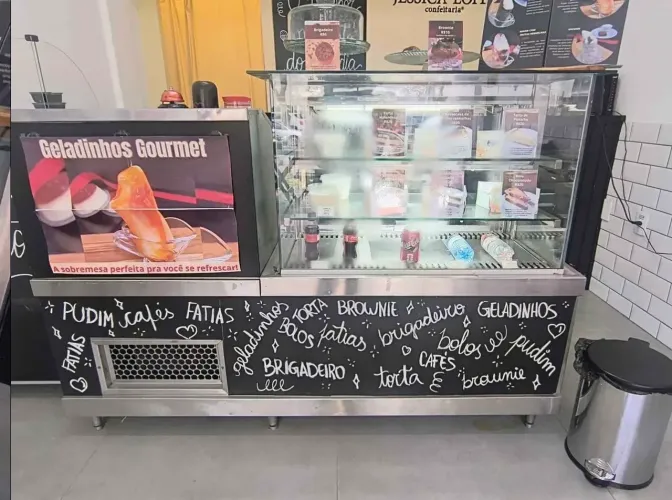 confeitaria
Brigadeiro
Brownie
Geladinhos Gourmet
A sobremesa perfeita pra você se refrescar!
PUDIM cafés FATIAS
FATIAS
geladinhos TORTA BROWNIE
BOLOS fatias brigadeiro GELADINHOS
geladinhos
BRIGADEIRO
CAFÉS bolos pudim
torta brownie